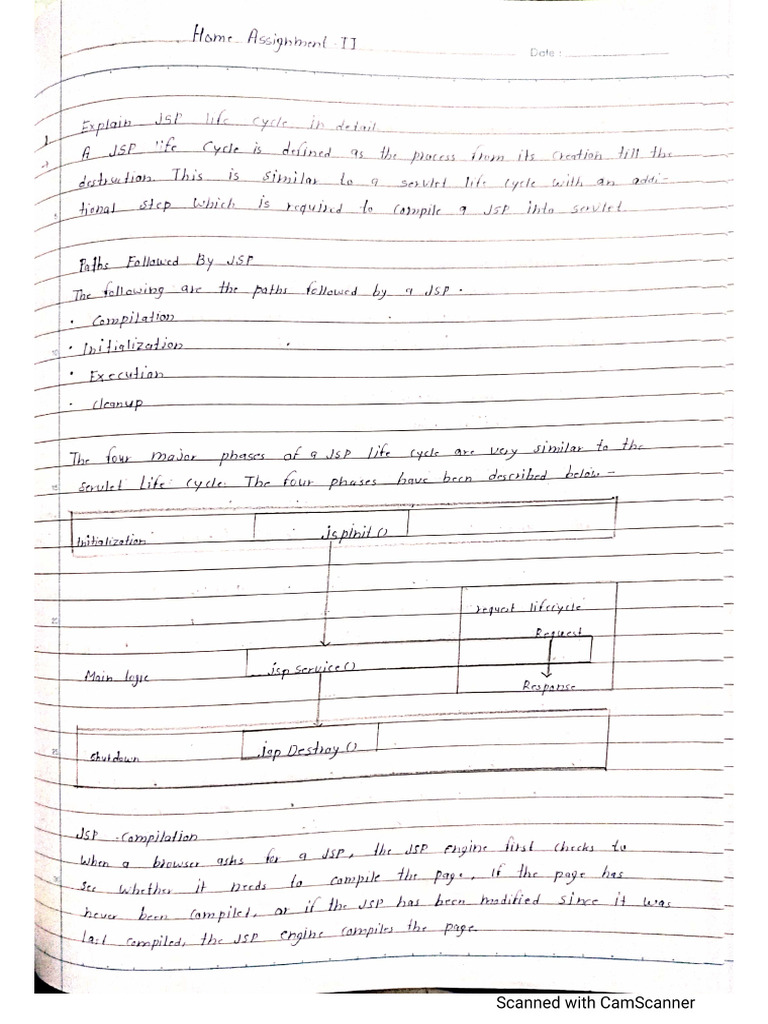 Home Assignment-II
Date :
1. Explain JSP life cycle in detail
→ A JSP life Cycle is defined as the process from its creation till the
destruction. This is similar to a servlet life cycle with an addi-
tional step which is required to compile a JSP into servlet.
Paths Followed By JSP
The following are the paths followed by a JSP.
• Compilation
• Initialization
• Execution
• Cleanup
The four major phases of a JSP life cycle are very similar to the
servlet Life cycle. The four phases have been described below -
Initialization jspInit()
request lifecycle
Request
Main logic jsp Service()
Response
Shutdown jsp Destroy()
JSP Compilation
When a browser asks for a JSP, the JSP engine first checks to
see whether it needs to compile the page, If the page has
never been compiled, or if the JSP has been modified since it was
last compiled, the JSP engine compiles the page.
Scanned with CamScanner